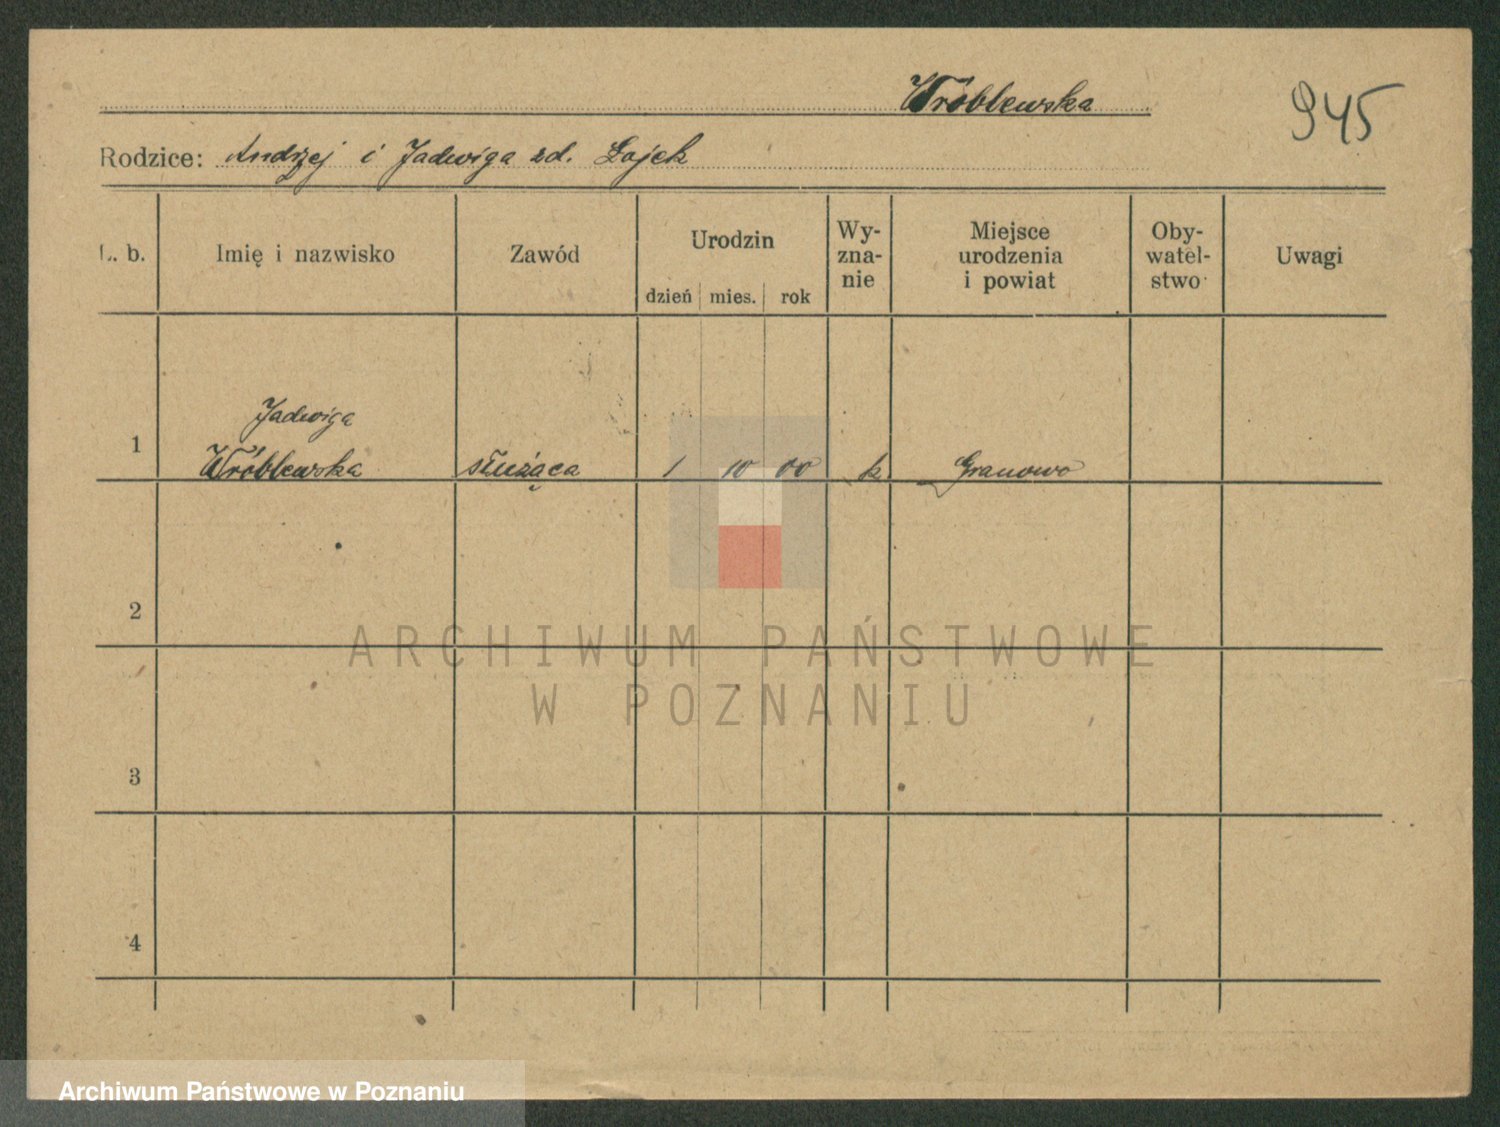 Wróblewska
945
Rodzice: Andrzej i Jadwiga zd. Łojek
L. b. Imię i nazwisko Zawód Urodzin Wy-zna-nie Miejsce urodzenia i powiat Oby-watel-stwo Uwagi
dzień mies. rok
Jadwiga
1 Wróblewska służąca 1 10 00 k Granowo
2
ARCHIWUM PAŃSTWOWE
W POZNANIU
3
4
Archiwum Państwowe w Poznaniu